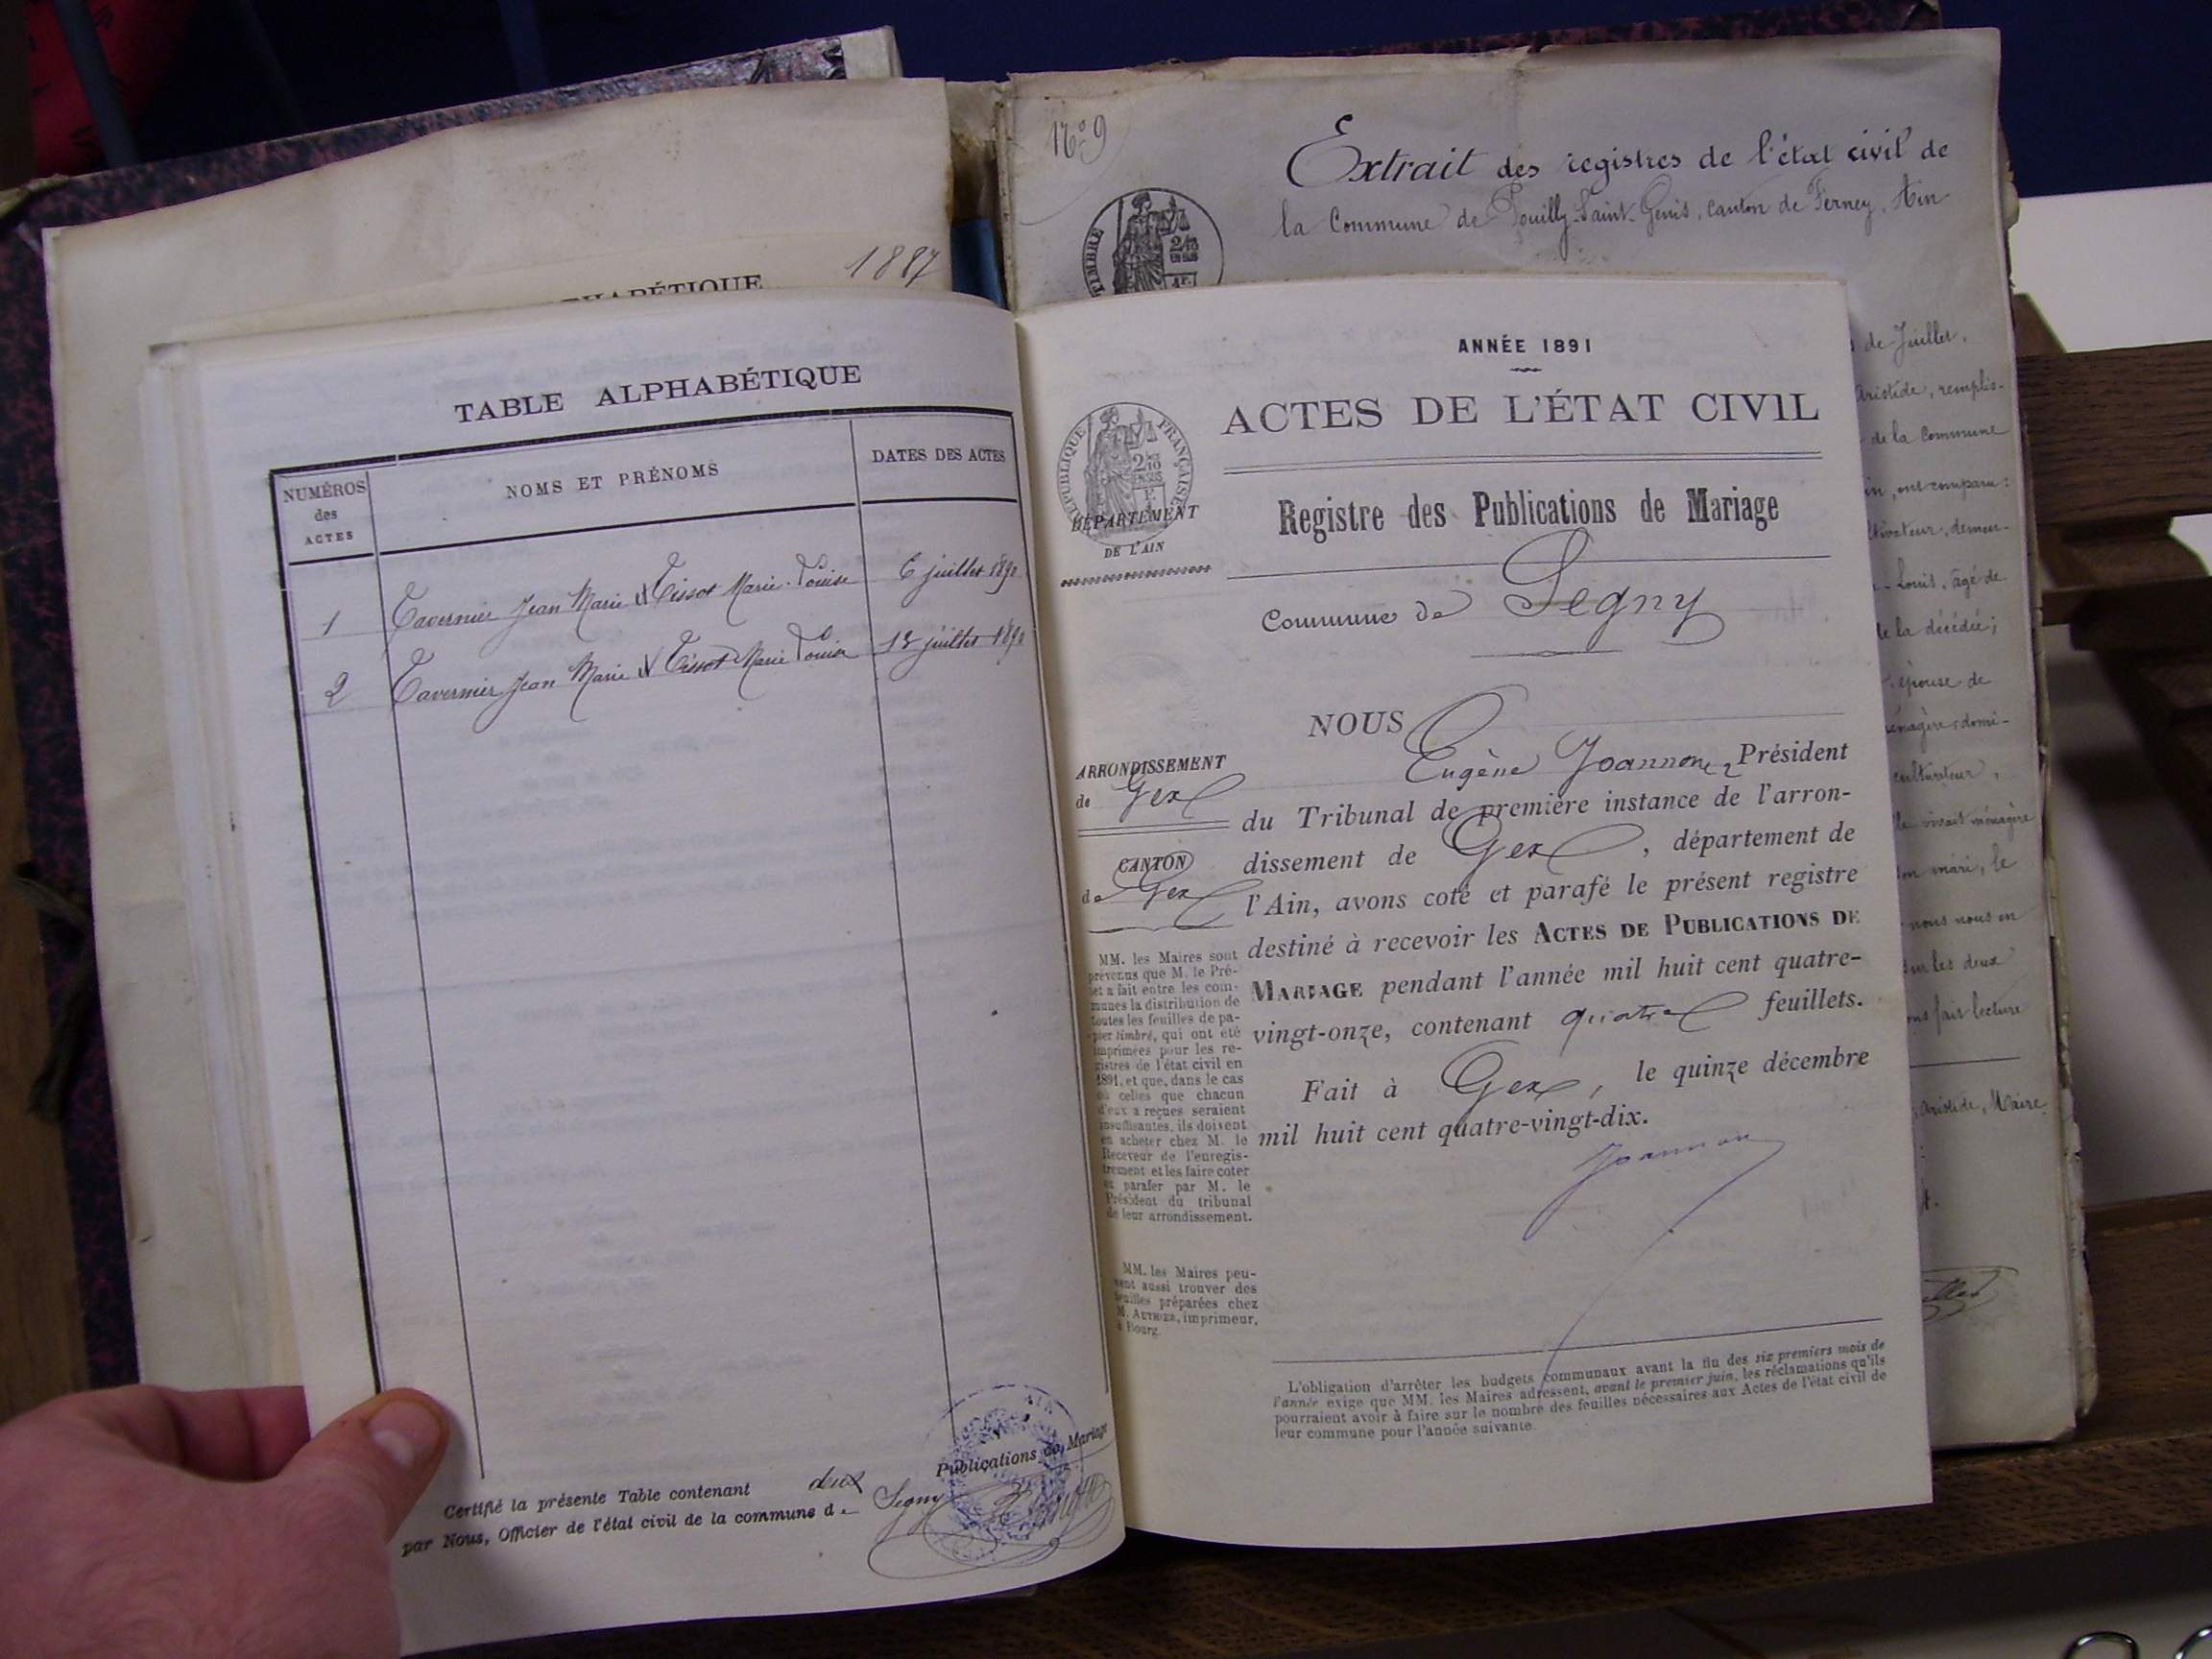 1887
TABLE ALPHABÉTIQUE
NUMÉROS
des
ACTES
NOMS ET PRÉNOMS
DATES DES ACTES
1 Tavernier Jean Marie et Tissot Marie Louise 6 juillet 1890
2 Tavernier Jean Marie et Tissot Marie Louise 13 juillet 1890
Certifié la présente Table contenant deux Publications de Mariage
par Nous, Officier de l'état civil de la commune de Segny
N° 9
Extrait des registres de l'état civil de
la Commune de Pouilly-Saint-Genis, canton de Ferney, Ain
TIMBRE
2/10
EN SUS
de Juillet,
Aristide, remplis-
de la Commune
ont comparu:
demeu-
Louis, âgé de
de la décédée;
épouse de
domi-
cultivateur,
vivait ménagère
mari, le
nous nous en
sur les deux
fait lecture
Aristide, Maire
ANNÉE 1891
ACTES DE L'ÉTAT CIVIL
RÉPUBLIQUE FRANÇAISE
2/10
EN SUS
DÉPARTEMENT
DE L'AIN
Registre des Publications de Mariage
Commune de Segny
ARRONDISSEMENT
de Gex
CANTON
de Gex
MM. les Maires sont
prévenus que M. le Pré-
fet a fait entre les com-
munes la distribution de
toutes les feuilles de pa-
pier timbré, qui ont été
imprimées pour les re-
gistres de l'état civil en
1891, et que, dans le cas
où celles que chacun
d'eux a reçues seraient
insuffisantes, ils doivent
en acheter chez M. le
Receveur de l'enregis-
trement et les faire coter
et parafer par M. le
Président du tribunal
de leur arrondissement.
MM. les Maires peu-
vent aussi trouver des
feuilles préparées chez
M. AUTHIER, imprimeur,
à Bourg.
NOUS
Eugène Joannon, Président
du Tribunal de première instance de l'arron-
dissement de Gex, département de
l'Ain, avons coté et parafé le présent registre
destiné à recevoir les ACTES DE PUBLICATIONS DE
MARIAGE pendant l'année mil huit cent quatre-
vingt-onze, contenant quatre feuillets.
Fait à Gex, le quinze décembre
mil huit cent quatre-vingt-dix.
Joannon
L'obligation d'arrêter les budgets communaux avant la fin des six premiers mois de
l'année exige que MM. les Maires adressent, avant le premier juin, les réclamations qu'ils
pourraient avoir à faire sur le nombre des feuilles nécessaires aux Actes de l'état civil de
leur commune pour l'année suivante.